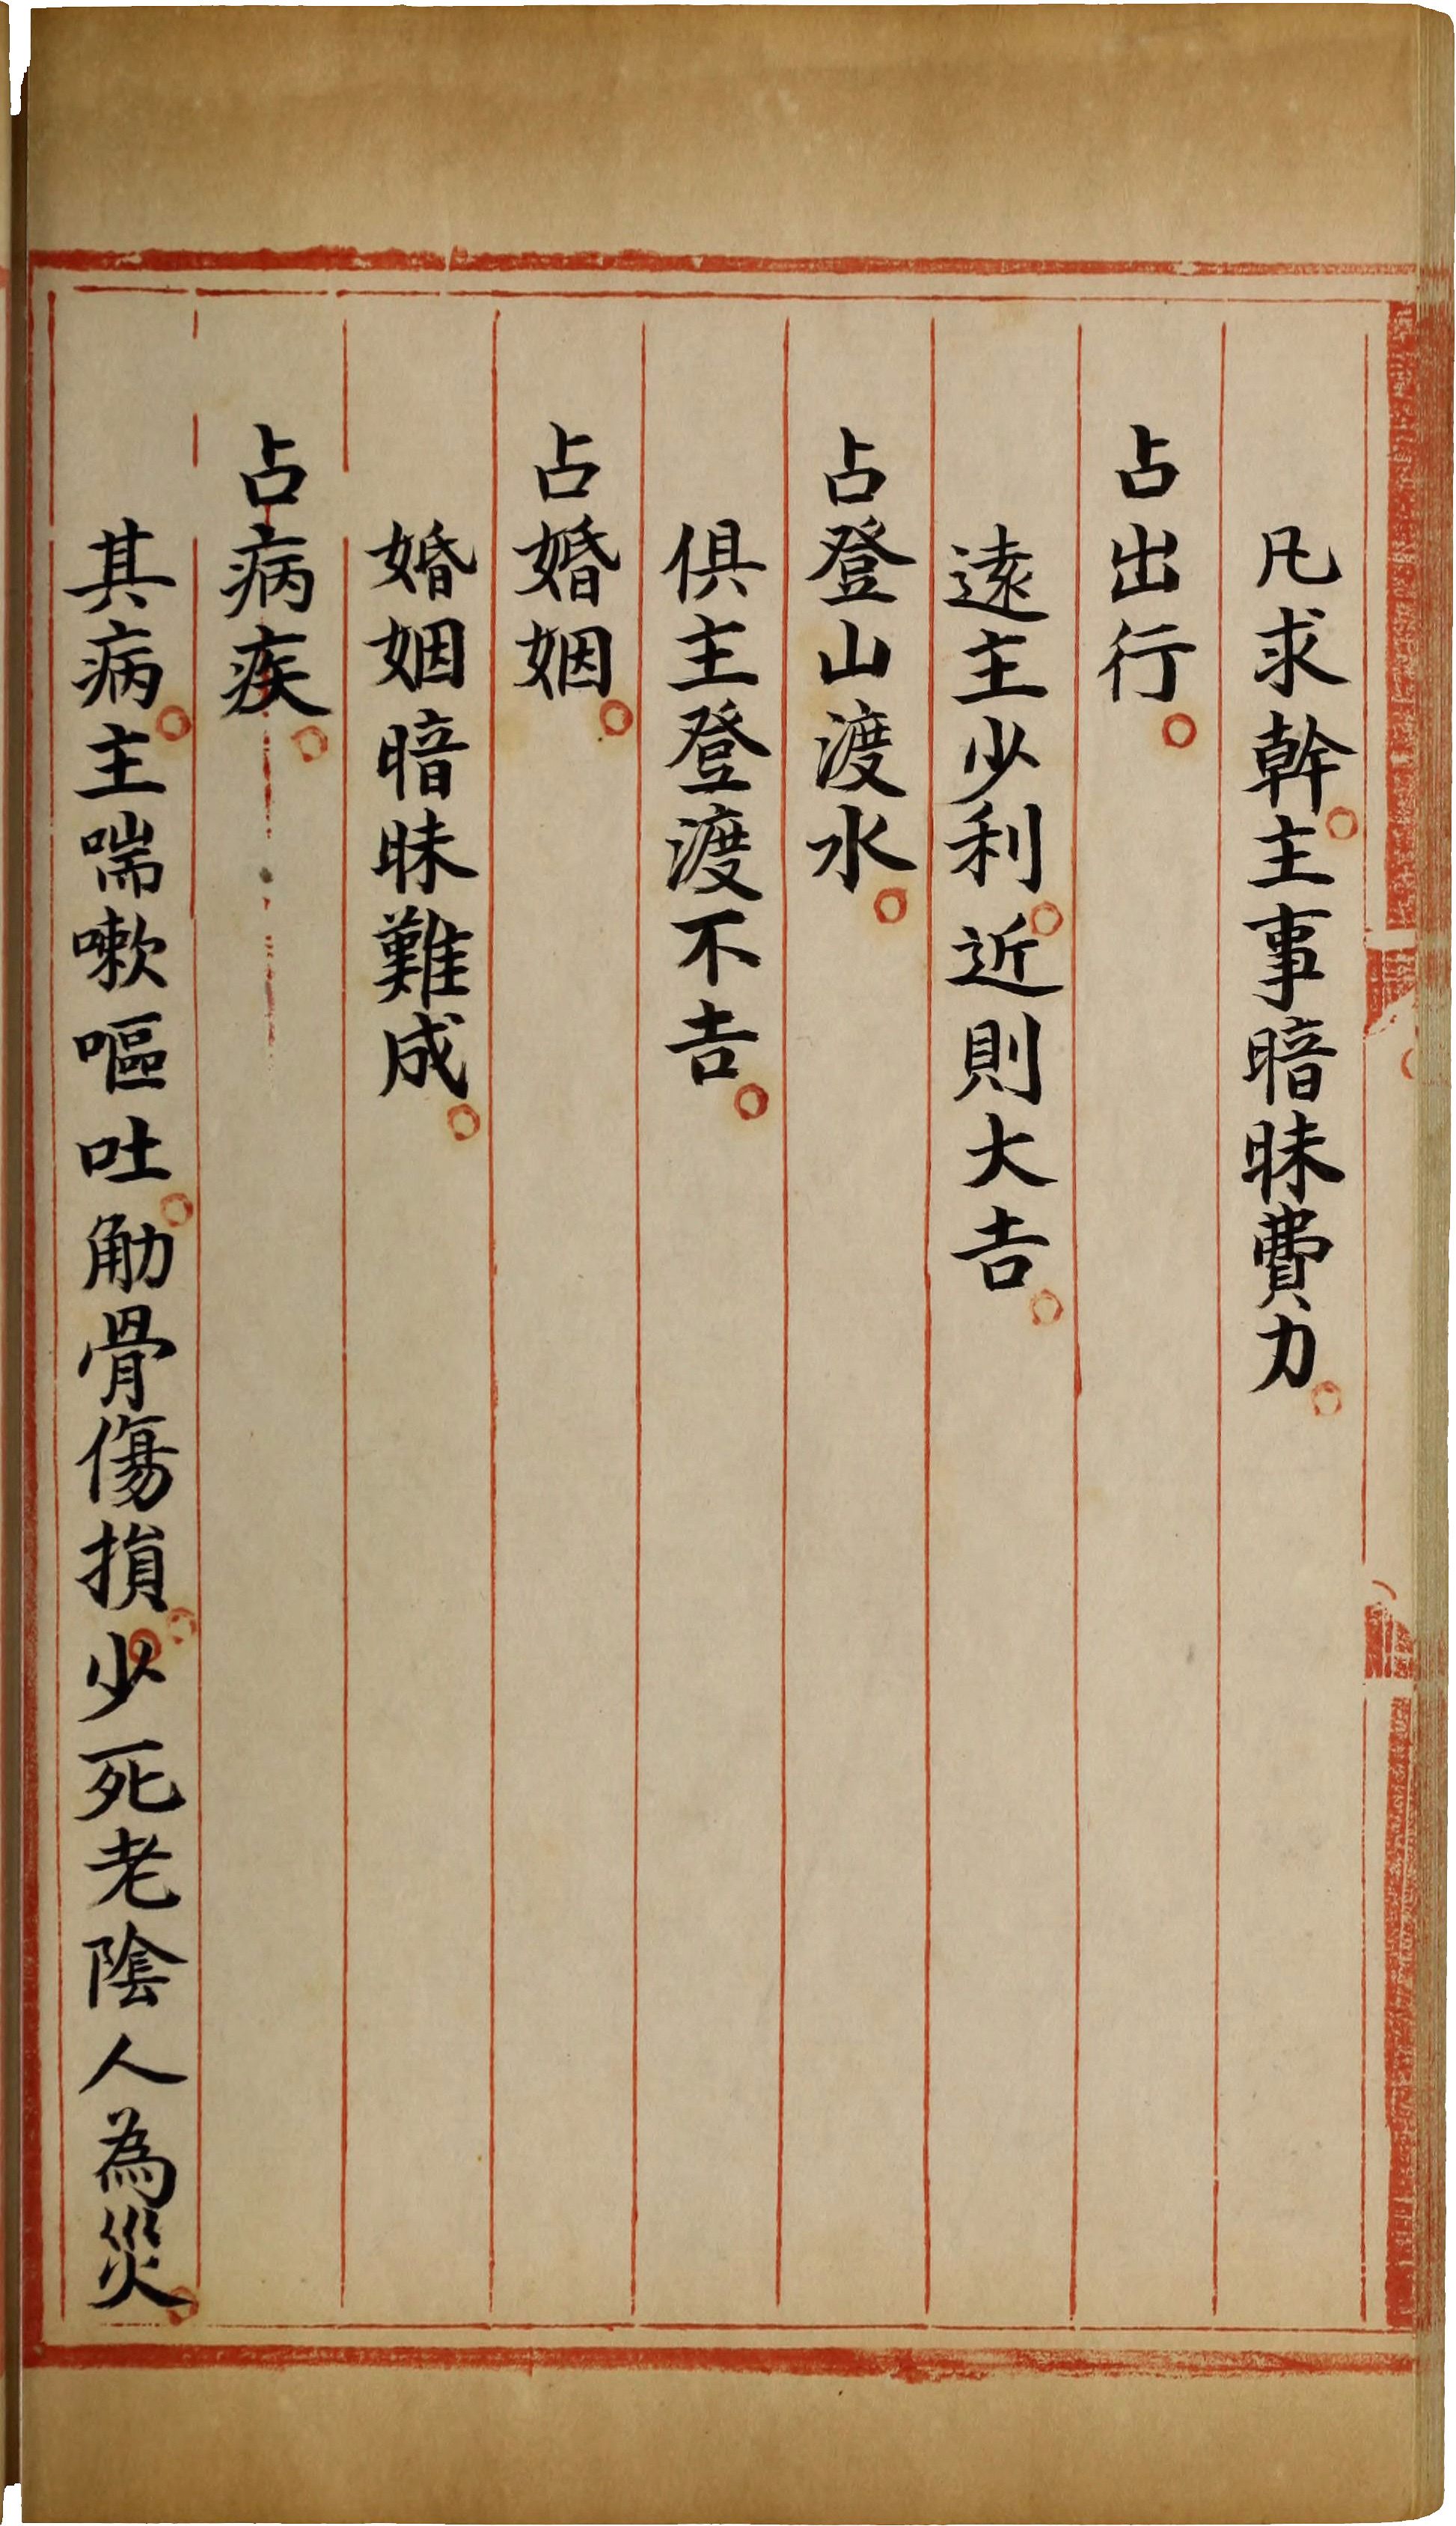 凡求幹。主事暗昧費力。
占出行。
遠主少利。近則大吉。
占登山渡水。
俱主登渡不吉。
占婚姻。
婚姻暗昧難成。
占病疾。
其病。主喘嗽嘔吐。觔骨傷損。少死老陰人為災。